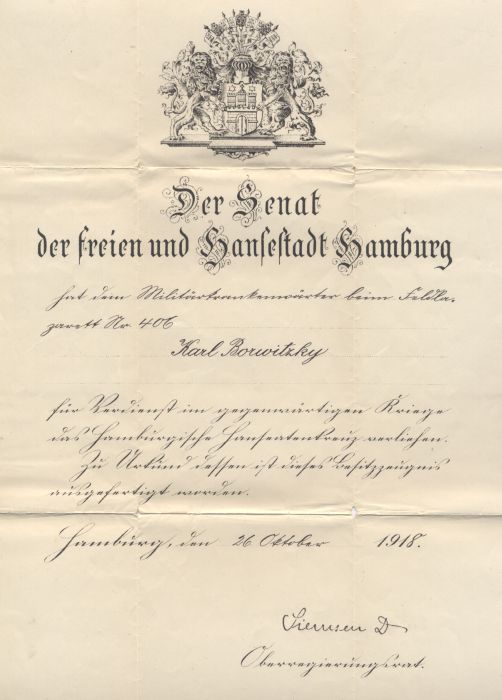 Der Senat
der freien und Hansestadt Hamburg
hat dem Militärkrankenwärter beim Feldla-
zarett Nr 406
Karl Borwitzky
für Verdienst im gegenwärtigen Kriege
das Hamburgische Hanseatenkreuz verliehen.
Zu Urkund dessen ist dieses Besitzzeugnis
ausgefertigt worden.
Hamburg, den 26 Oktober 1918.
Siemsen D
Oberregierungsrat.